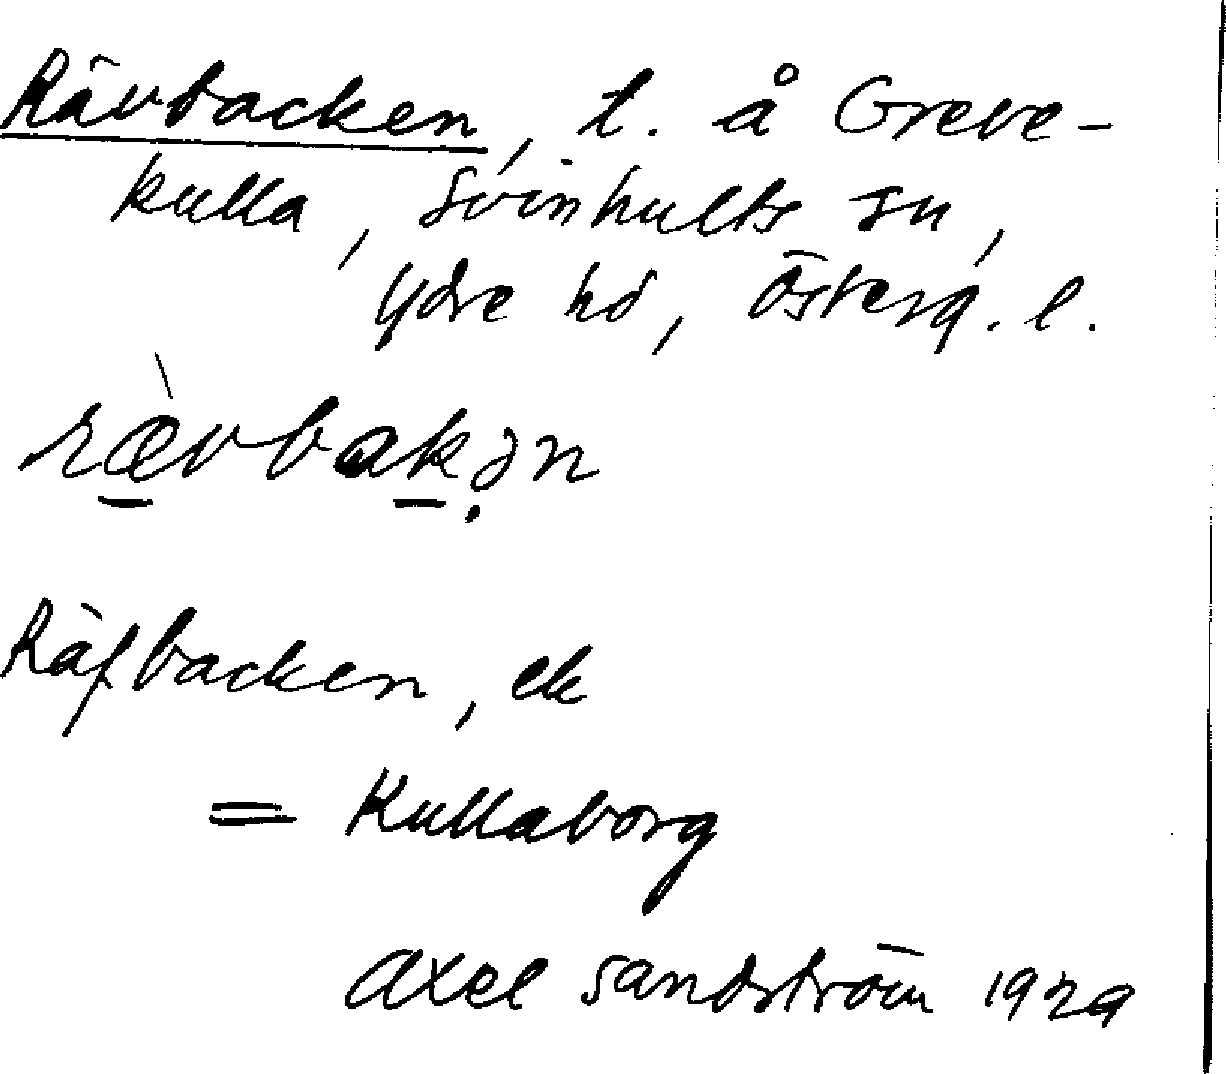 Rävbacken, t. å Greve-
kulla, Svinhults sn,
Ydre hd, Österg. l.
rævbakən
Räfbacken, ek
= Kullaborg
Axel Sandström 1929